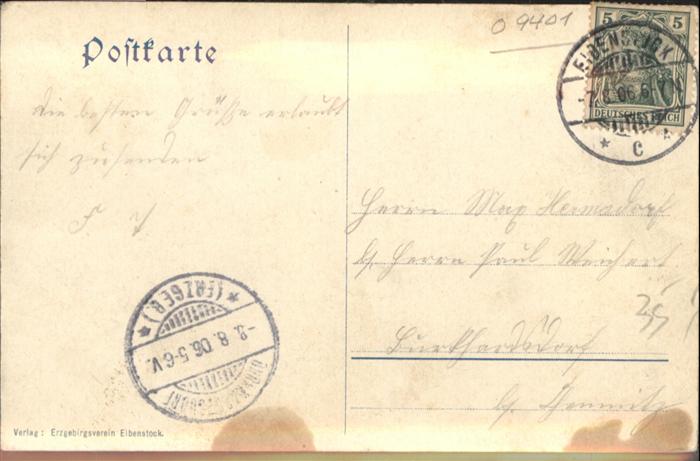 Postkarte
O 9401
5 5
EIBENSTOCK
-7.8.06.6-7
DEUTSCHES REICH
* C *
Die besten Grüße erlaubt
sich zusenden
F
Herrn Max Hermsdorf
b/ Herrn Paul Weichert
Burkhardsdorf
b/ Chemnitz
25
*(ERZGEB.)*
-8.8.06.5-6V.
BURKHARDTSDORF
Verlag: Erzgebirgsverein Eibenstock.